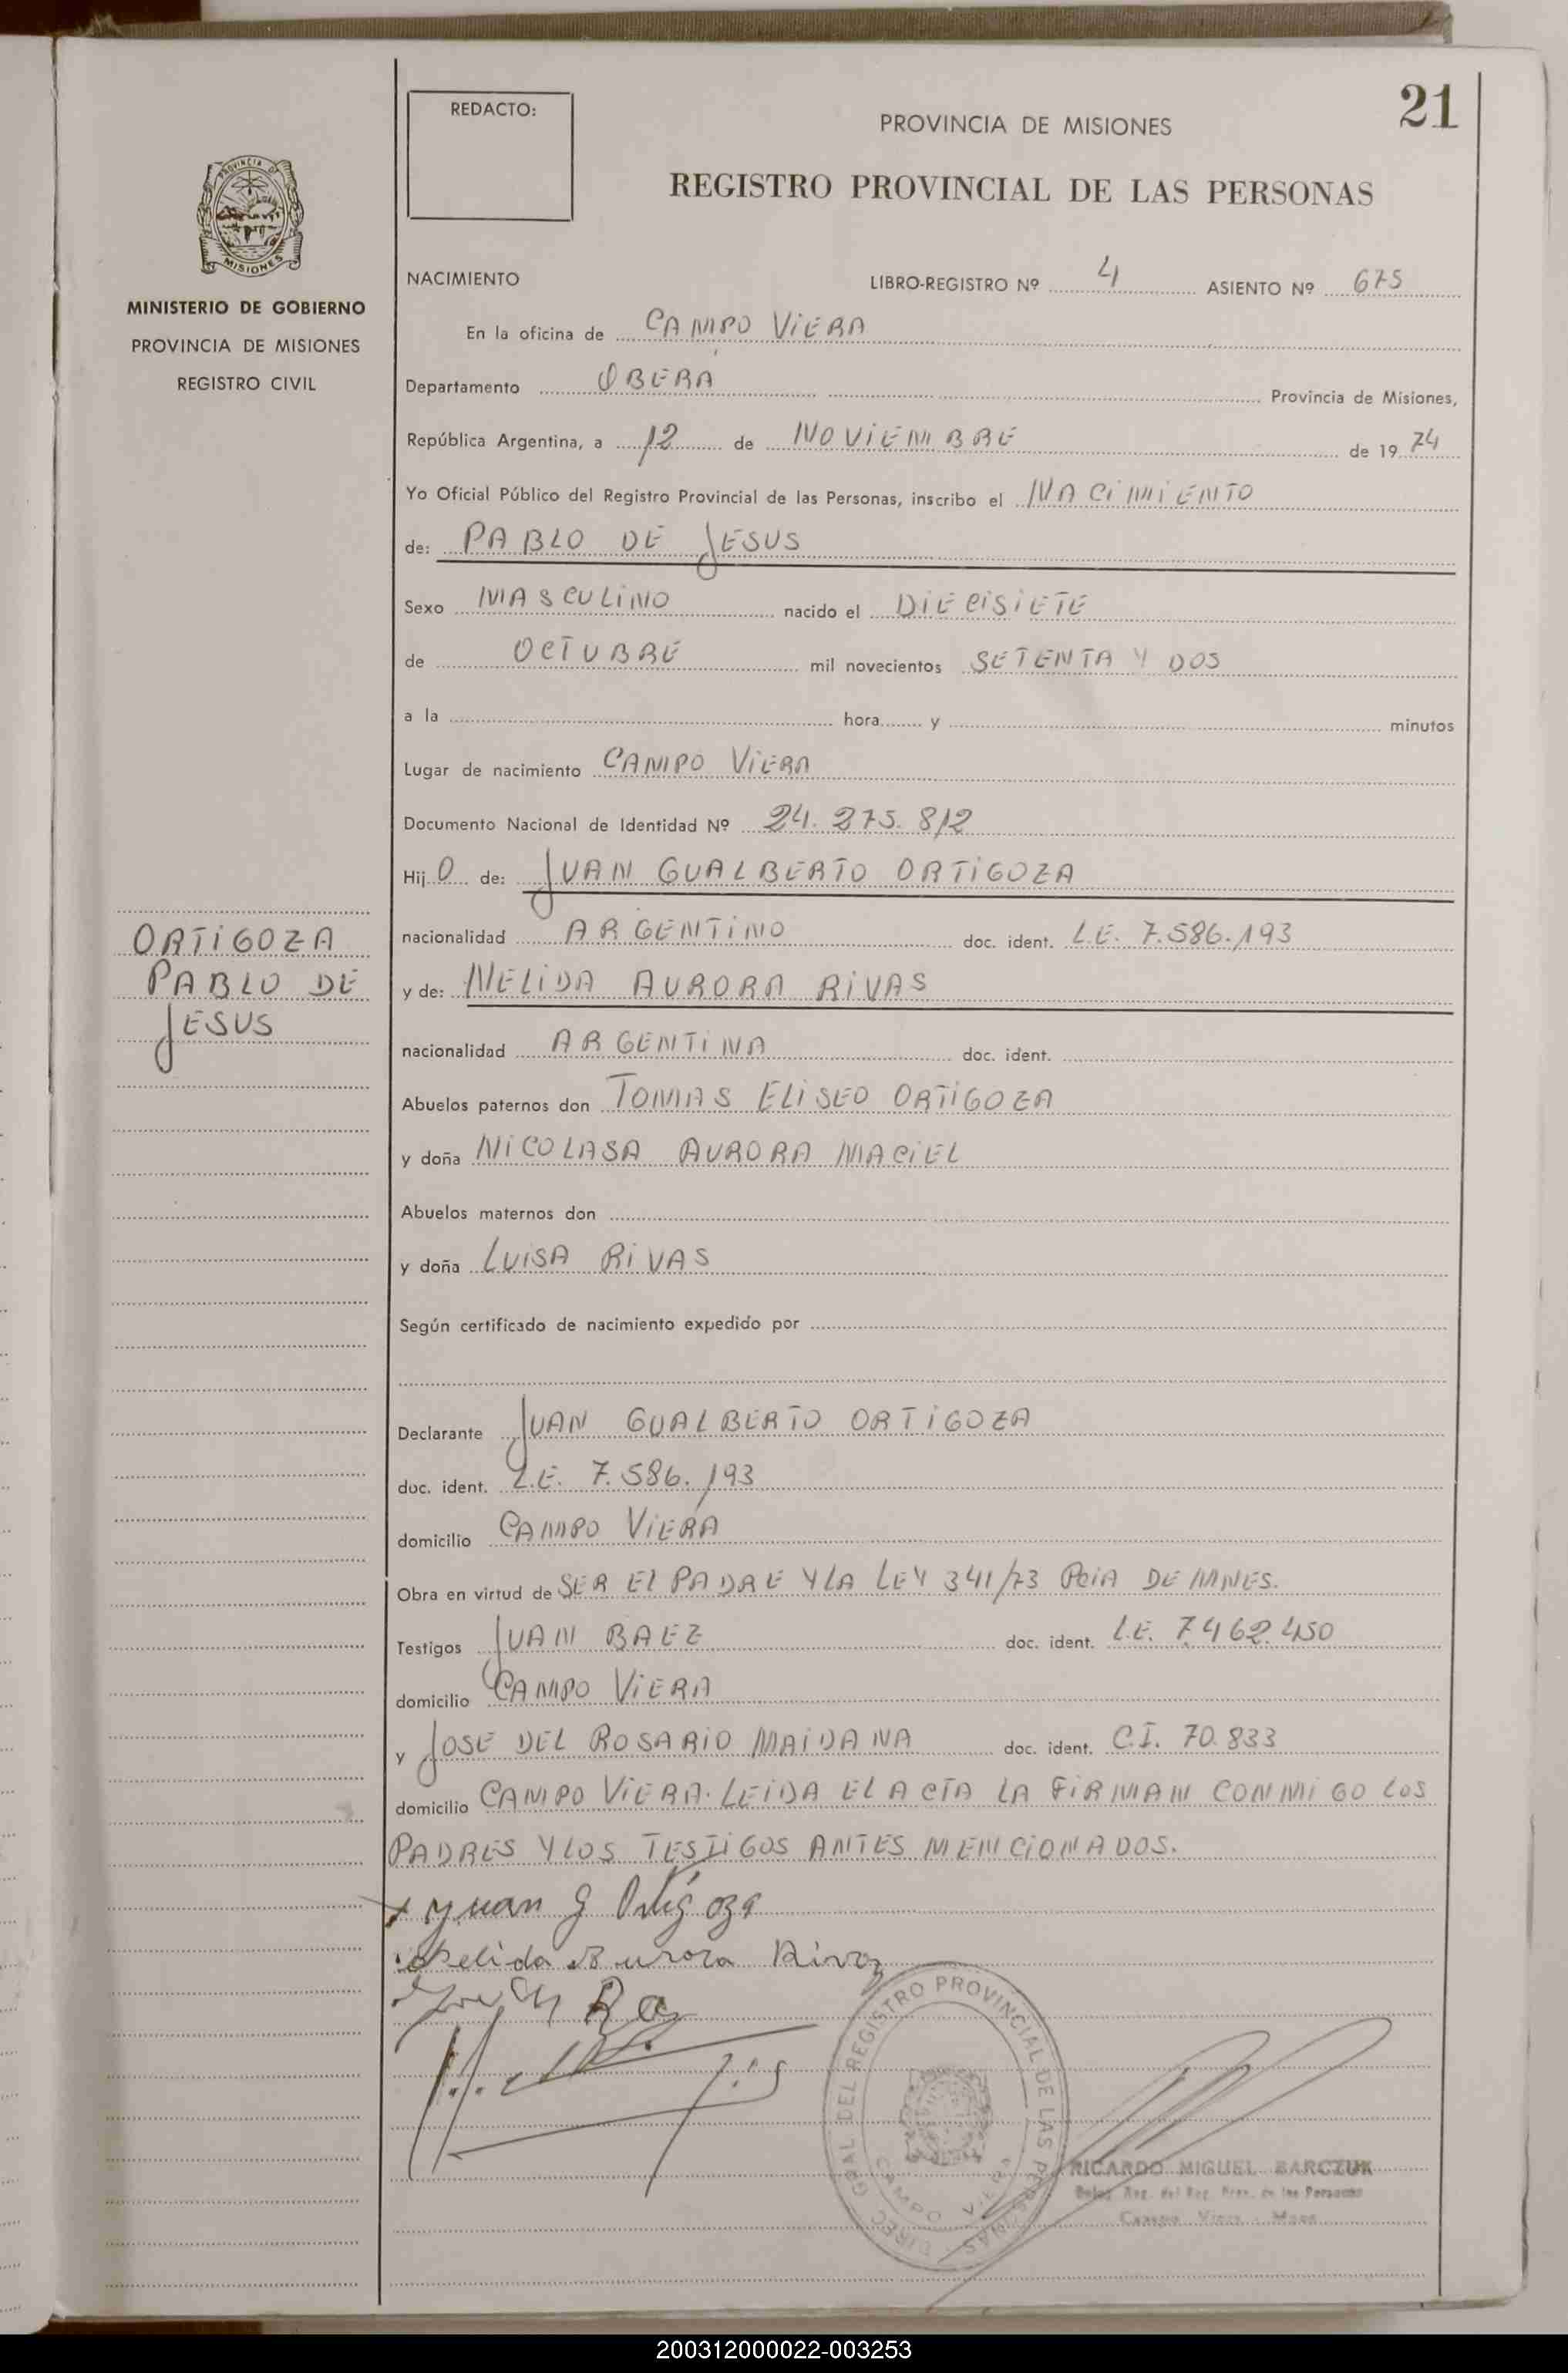 21
REDACTO:
PROVINCIA DE MISIONES
REGISTRO PROVINCIAL DE LAS PERSONAS
PROVINCIA DE
MISIONES
MINISTERIO DE GOBIERNO
PROVINCIA DE MISIONES
REGISTRO CIVIL
NACIMIENTO LIBRO-REGISTRO Nº 4 ASIENTO Nº 675
En la oficina de CAMPO VIERA
Departamento OBERÁ Provincia de Misiones,
República Argentina, a 12 de NOVIEMBRE de 1974
Yo Oficial Público del Registro Provincial de las Personas, inscribo el NACIMIENTO
de: PABLO DE JESUS
Sexo MASCULINO nacido el DIECISIETE
de OCTUBRE mil novecientos SETENTA Y DOS
a la hora y minutos
Lugar de nacimiento CAMPO VIERA
Documento Nacional de Identidad Nº 24.275.812
Hij O de: JUAN GUALBERTO ORTIGOZA
nacionalidad ARGENTINO doc. ident. L.E. 7.586.193
y de: NELIDA AURORA RIVAS
nacionalidad ARGENTINA doc. ident.
ORTIGOZA
PABLO DE
JESUS
Abuelos paternos don TOMAS ELISEO ORTIGOZA
y doña NICOLASA AURORA MACIEL
Abuelos maternos don
y doña LUISA RIVAS
Según certificado de nacimiento expedido por
Declarante JUAN GUALBERTO ORTIGOZA
doc. ident. L.E. 7.586.193
domicilio CAMPO VIERA
Obra en virtud de SER EL PADRE Y LA LEY 341/73 PCIA DE MNES.
Testigos JUAN BAEZ doc. ident. L.E. 7.462.450
domicilio CAMPO VIERA
y JOSE DEL ROSARIO MAIDANA doc. ident. C.I. 70.833
domicilio CAMPO VIERA. LEIDA EL ACTA LA FIRMAN CONMIGO LOS
PADRES Y LOS TESTIGOS ANTES MENCIONADOS.
Juan G Ortigoza
Nelida Aurora Rivas
DIREC. GRAL DEL REGISTRO PROVINCIAL DE LAS PERSONAS
CAMPO VIERA
RICARDO MIGUEL BARCZUK
del Reg. Prov. de las Personas
Campo Viera
200312000022-003253